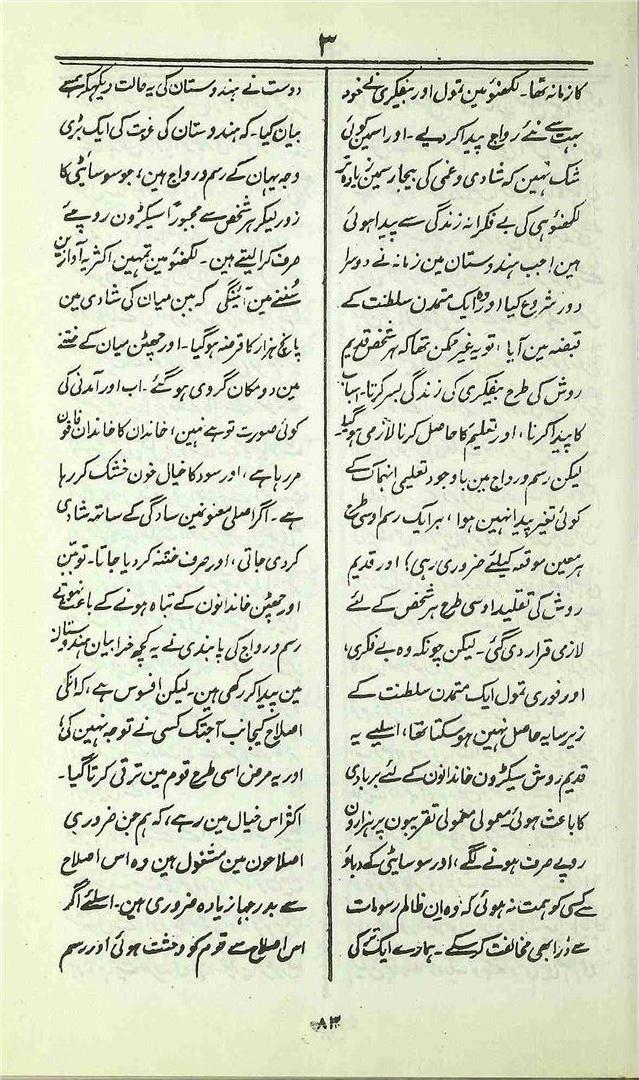 ۳
کا زمانہ تھا۔ لکھنؤ مین تمول اور بیفکری نے خود
بہت سے نئے رواج پیدا کر دیے۔ اور اسمین کوئی
شک نہین کہ شادی و غمی کی بیجا رسمین زیادہ تر
لکھنؤ ہی کی بے فکرانہ زندگی سے پیدا ہوئی
ہین! جب ہندوستان مین زمانہ نے دوسرا
دور شروع کیا اور وہ ایک متمدن سلطنت کے
قبضہ مین آیا، تو یہ غیر ممکن تھا کہ ہر شخص قدیم
روش کی طرح بیفکری کی زندگی بسر کرتا۔ اسباب
کا پیدا کرنا، اور تعلیم کا حاصل کرنا لازمی ہو گیا۔
لیکن رسم و رواج مین باوجود تعلیمی انہماک کے
کوئی تغیر پیدا نہین ہوا، ہر ایک رسم اوسی طرح
ہر معین موقعہ کیلئے ضروری رہی! اور قدیم
روش کی تقلید اوسی طرح ہر شخص کے لئے
لازمی قرار دی گئی۔ لیکن چونکہ وہ بے فکری،
اور فوری تمول ایک متمدن سلطنت کے
زیر سایہ حاصل نہین ہو سکتا تھا، اسلیے یہ
قدیم روش سیکڑون خاندانون کے لئے بربادی
کا باعث ہوئی۔ معمولی معمولی تقریبون پر ہزارون
روپے صرف ہونے لگے، اور سوسائٹی کے دباؤ
سے کسی کو ہمت نہ ہوئی کہ وہ اِن ظالم رسومات
سے ذرا بھی مخالفت کر سکے۔ ہمارے ایک
دوست نے ہندوستان کی یہ حالت دیکھکر ہمسے
بیان کیا۔ کہ ہندوستان کی غربت کی ایک بڑی
وجہ یہان کے رسم و رواج ہین، جو سوسائٹی کا
زور لیکر ہر شخص سے مجبوراً سیکڑون روپے
صرف کرا لیتے ہین۔ لکھنؤ مین تمہین اکثر یہ آوازین
سُننے مین آئینگی کہ ببن میان کی شادی مین
پانچ ہزار کا قرضہ ہو گیا۔ اور چھٹن میان کے ختنے
مین دو مکان گروی ہو گئے۔ اب اور آمدنی کی
کوئی صورت تو ہے نہین، خاندان کا خاندان فاقون
مر رہا ہے، اور سود کا خیال خون خشک کر رہا
ہے۔ اگر اصلی معنونمین سادگی کے ساتھ شادی
کر دی جاتی، اور صرف ختنہ کر دیا جاتا۔ تو ببن
اور چھٹن خاندانون کے تباہ ہونے کے باعث نہوتے
رسم و رواج کی پابندی نے یہ کچھ خرابیان ہندوستان
مین پیدا کر رکھی ہین۔ لیکن افسوس ہے، کہ انکی
اصلاح کیجانب آجتک کسی نے توجہ نہین کی!
اور یہ مرض اسی طرح قوم مین ترقی کرتا گیا۔
اکثر اس خیال مین رہے، کہ ہم جن ضروری
اصلاحون مین مشغول ہین وہ اس اصلاح
سے بدرجہا زیادہ ضروری ہین۔ اسلئے اگر
اس اصلاح سے قوم کو وحشت ہوئی اور رسم
۸۳